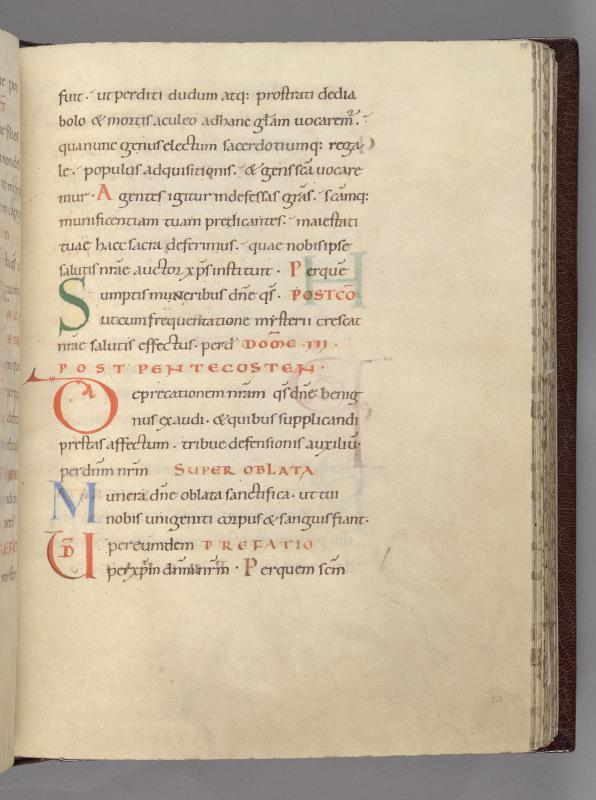 fuit · ut perditi dudum atq: prostrati dedia
bolo & mortis aculeo ad hanc gl̄am uocarem̄ ·
qua nunc genus electum sacerdotiumq: rega
le · populus adquisitionis · & gens sc̄a uocare
mur · Agentes igitur indefessas gr̄as · sc̄amq:
munificentiam tuam predicantes · maiestati
tuae haec sacra deferimus · quae nobis ipse
salutis nr̄ae auctor xp̄s instituit · Per que
Sumptis muneribus dn̄e qs̄ · POSTCO
ut cum frequentatione mysterii crescat
nr̄ae salutis effectus · per d DOM̄C III ·
POST PENTECOSTEN ·
Deprecationem nr̄am qs̄ dn̄e benig
nus exaudi · & quibus supplicandi
prestas affectum · tribue defensionis auxiliū ·
per dn̄m nr̄m SUPER OBLATA
Munera dn̄e oblata sanctifica · ut tui
nobis unigeniti corpus & sanguis fiant ·
per eundem PREFATIO
UD per xp̄m dn̄m nr̄m · Per quem sc̄m